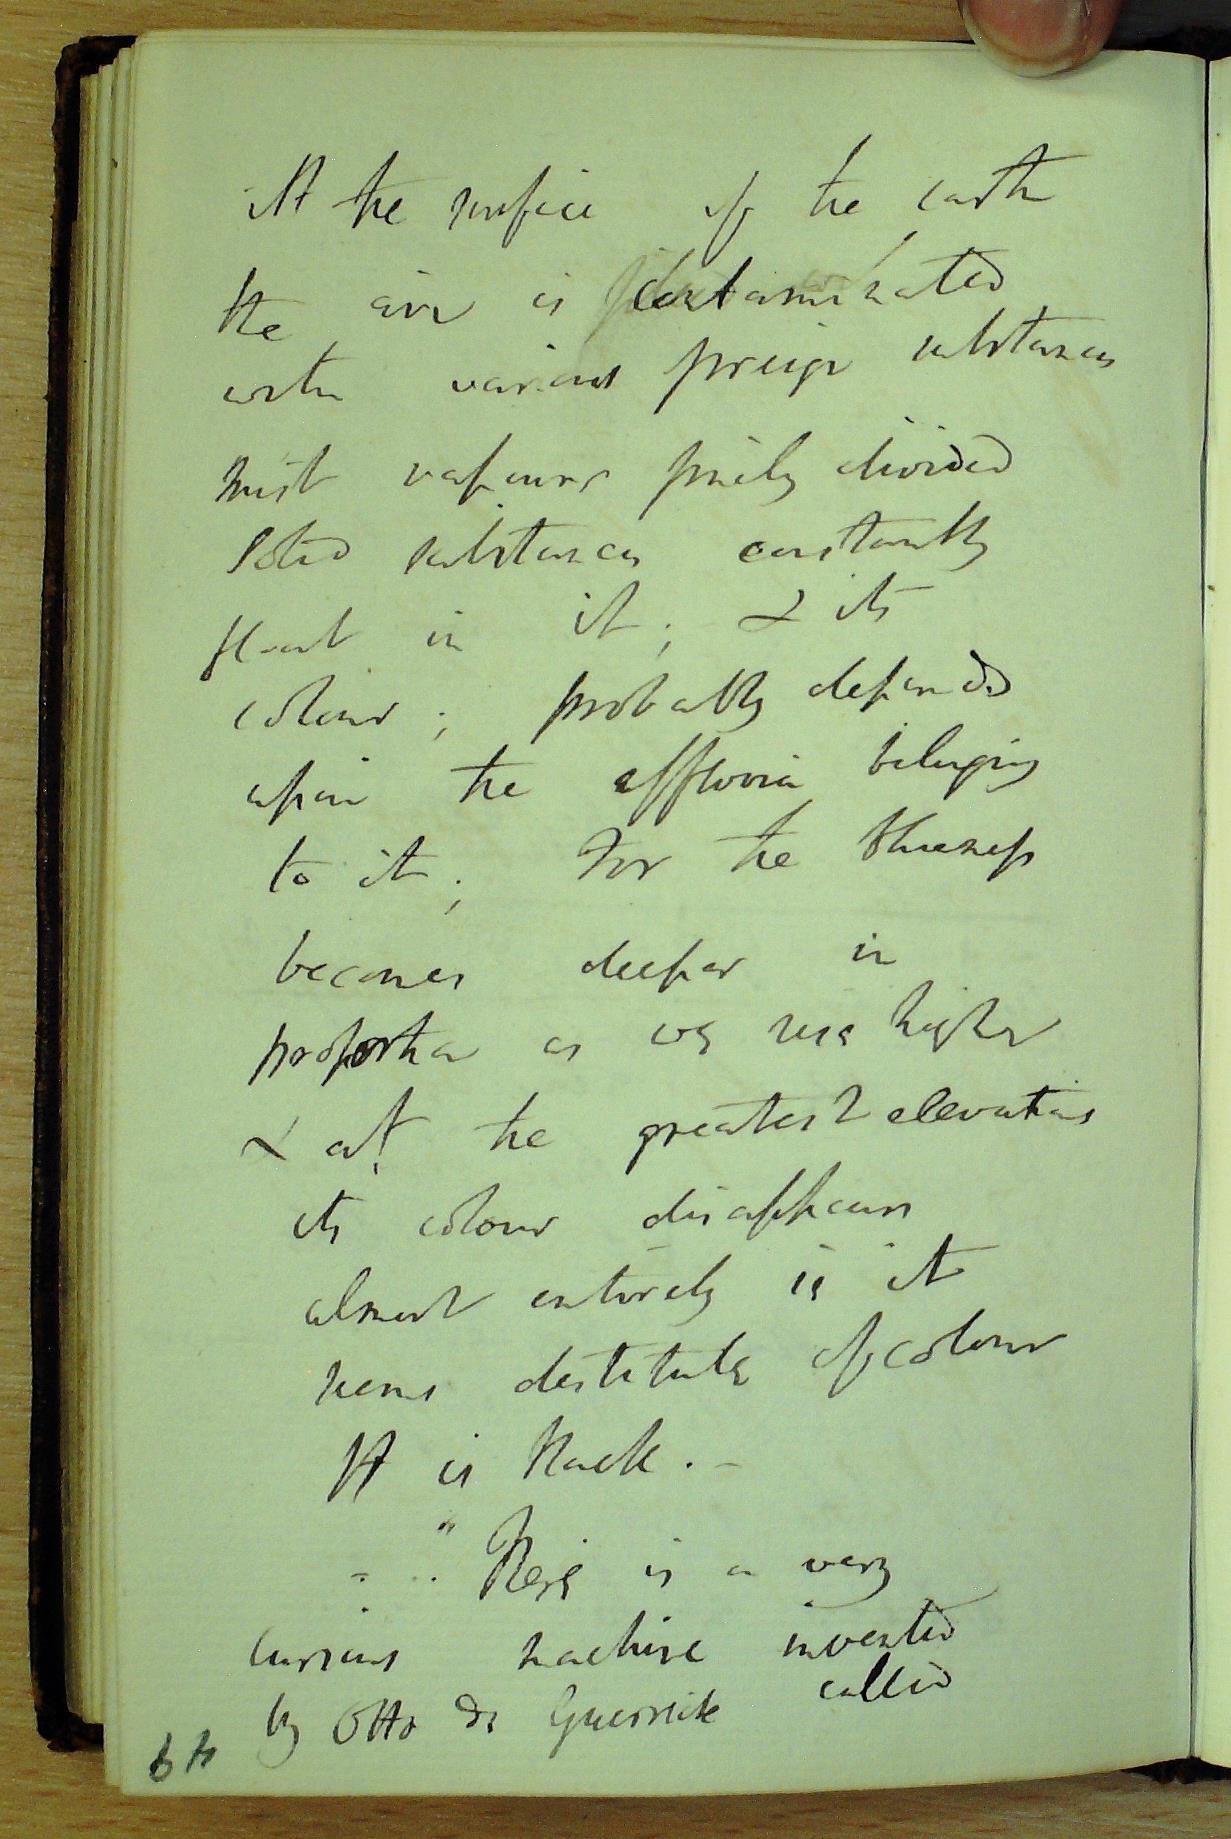 At the surface of the earth
the air is contaminated
with various foreign substances
mist vapours finely divided
solid substances constantly
float in it; & its
colour; probably depends
upon the effluvia belonging
to it; For the blueness
becomes deeper in
proportion as we rise higher
& at the greatest elevations
its colour disappears
almost entirely is it
seems destitute of colour
It is black. -
" There is a very
curious machine invented
by Otto de Guerricke called